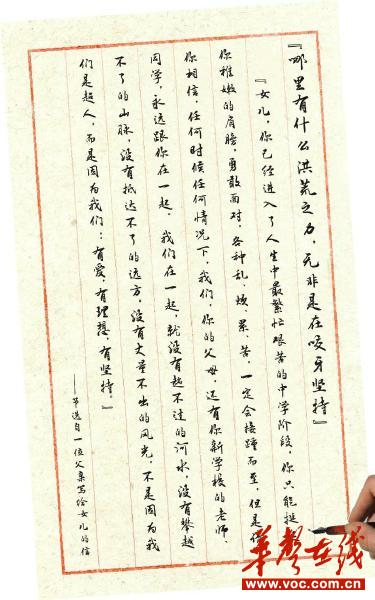 『哪里有什么洪荒之力,无非是在咬牙坚持』
『女儿,你已经进入了人生中最繁忙艰苦的中学阶段,你只能挺
你稚嫩的肩膀,勇敢面对,各种乱、烦、累、苦,一定会接踵而至,但是
你相信,任何时候任何情况下,我们,你的父母,还有你新学校的老师、
同学,永远跟你在一起。我们在一起,就没有趟不过的河水,没有攀越
不了的山脉,没有抵达不了的远方,没有丈量不出的风光,不是因为我
们是超人,而是因为我们:有爱,有理想,有坚持。』
——节选自一位父亲写给女儿的信
华声在线
www.voc.com.cn